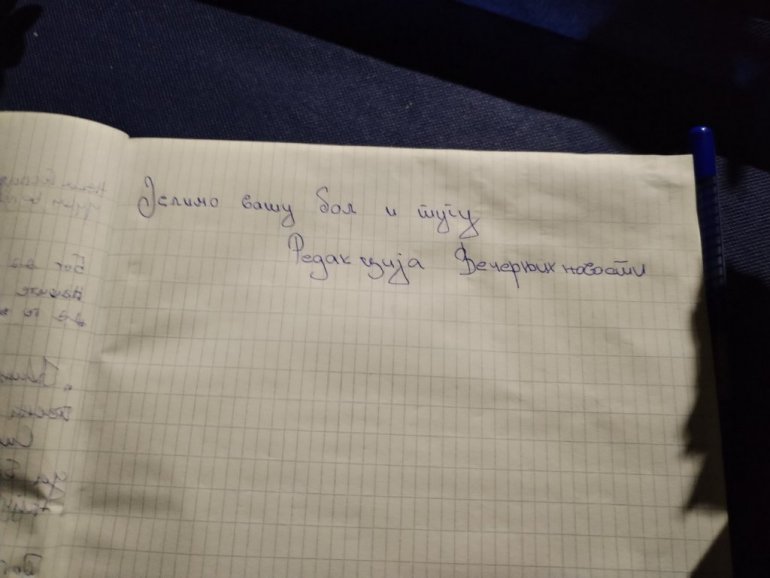 Делимо вашу бол и тугу
Редакција Вечерњих новости